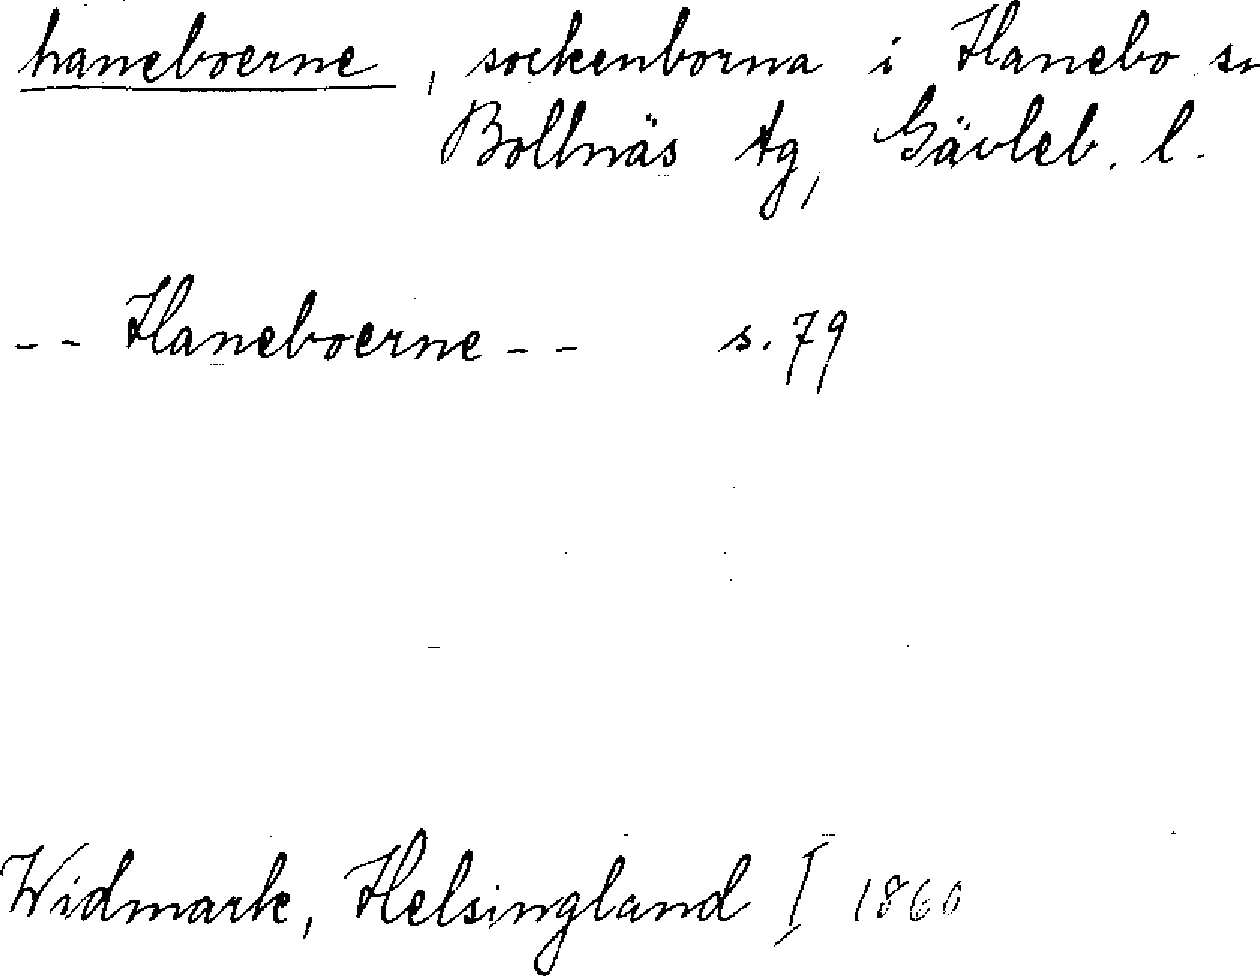 haneboerne, sockenborna i Hanebo sn
Bollnäs tg, Gävleb. l.
-- Haneboerne -- s. 79
Widmark, Helsingland I 1860